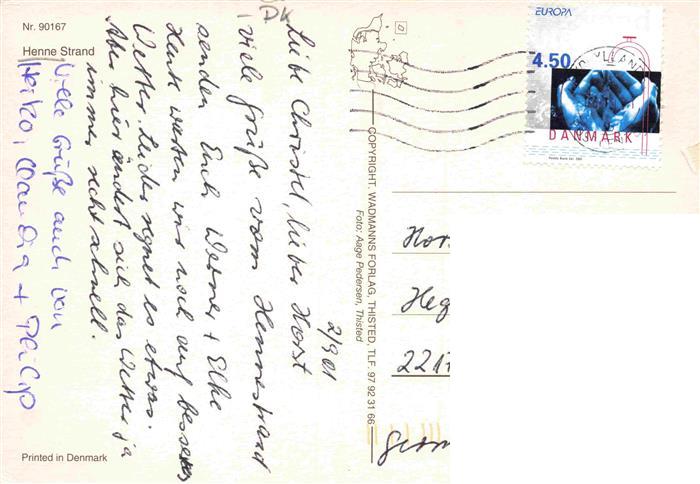 Nr. 90167
Henne Strand
DK
2/9 01
Liebe Christel, lieber Horst
viele Grüße vom Hennestrand
senden Euch Werner + Elke
Heute warten wir noch auf besseres
Wetter. Leider regnet es etwas.
Aber hier ändert sich das Wetter ja
immer recht schnell.
Viele Grüße auch von
Heiko, Claudia + Philip
Printed in Denmark
COPYRIGHT. WADMANNS FORLAG, THISTED, TLF. 97 92 31 66
Foto: Aage Pedersen, Thisted
EUROPA
4.50
DANMARK
Hor
Heg
221
Germ